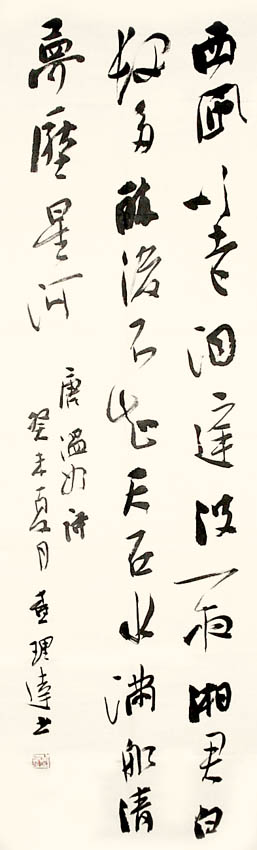 西風吹老洞庭波一夜湘君白
髮多醉後不知天在水滿船清
夢壓星河
唐溫如詩
癸未夏月 理達書